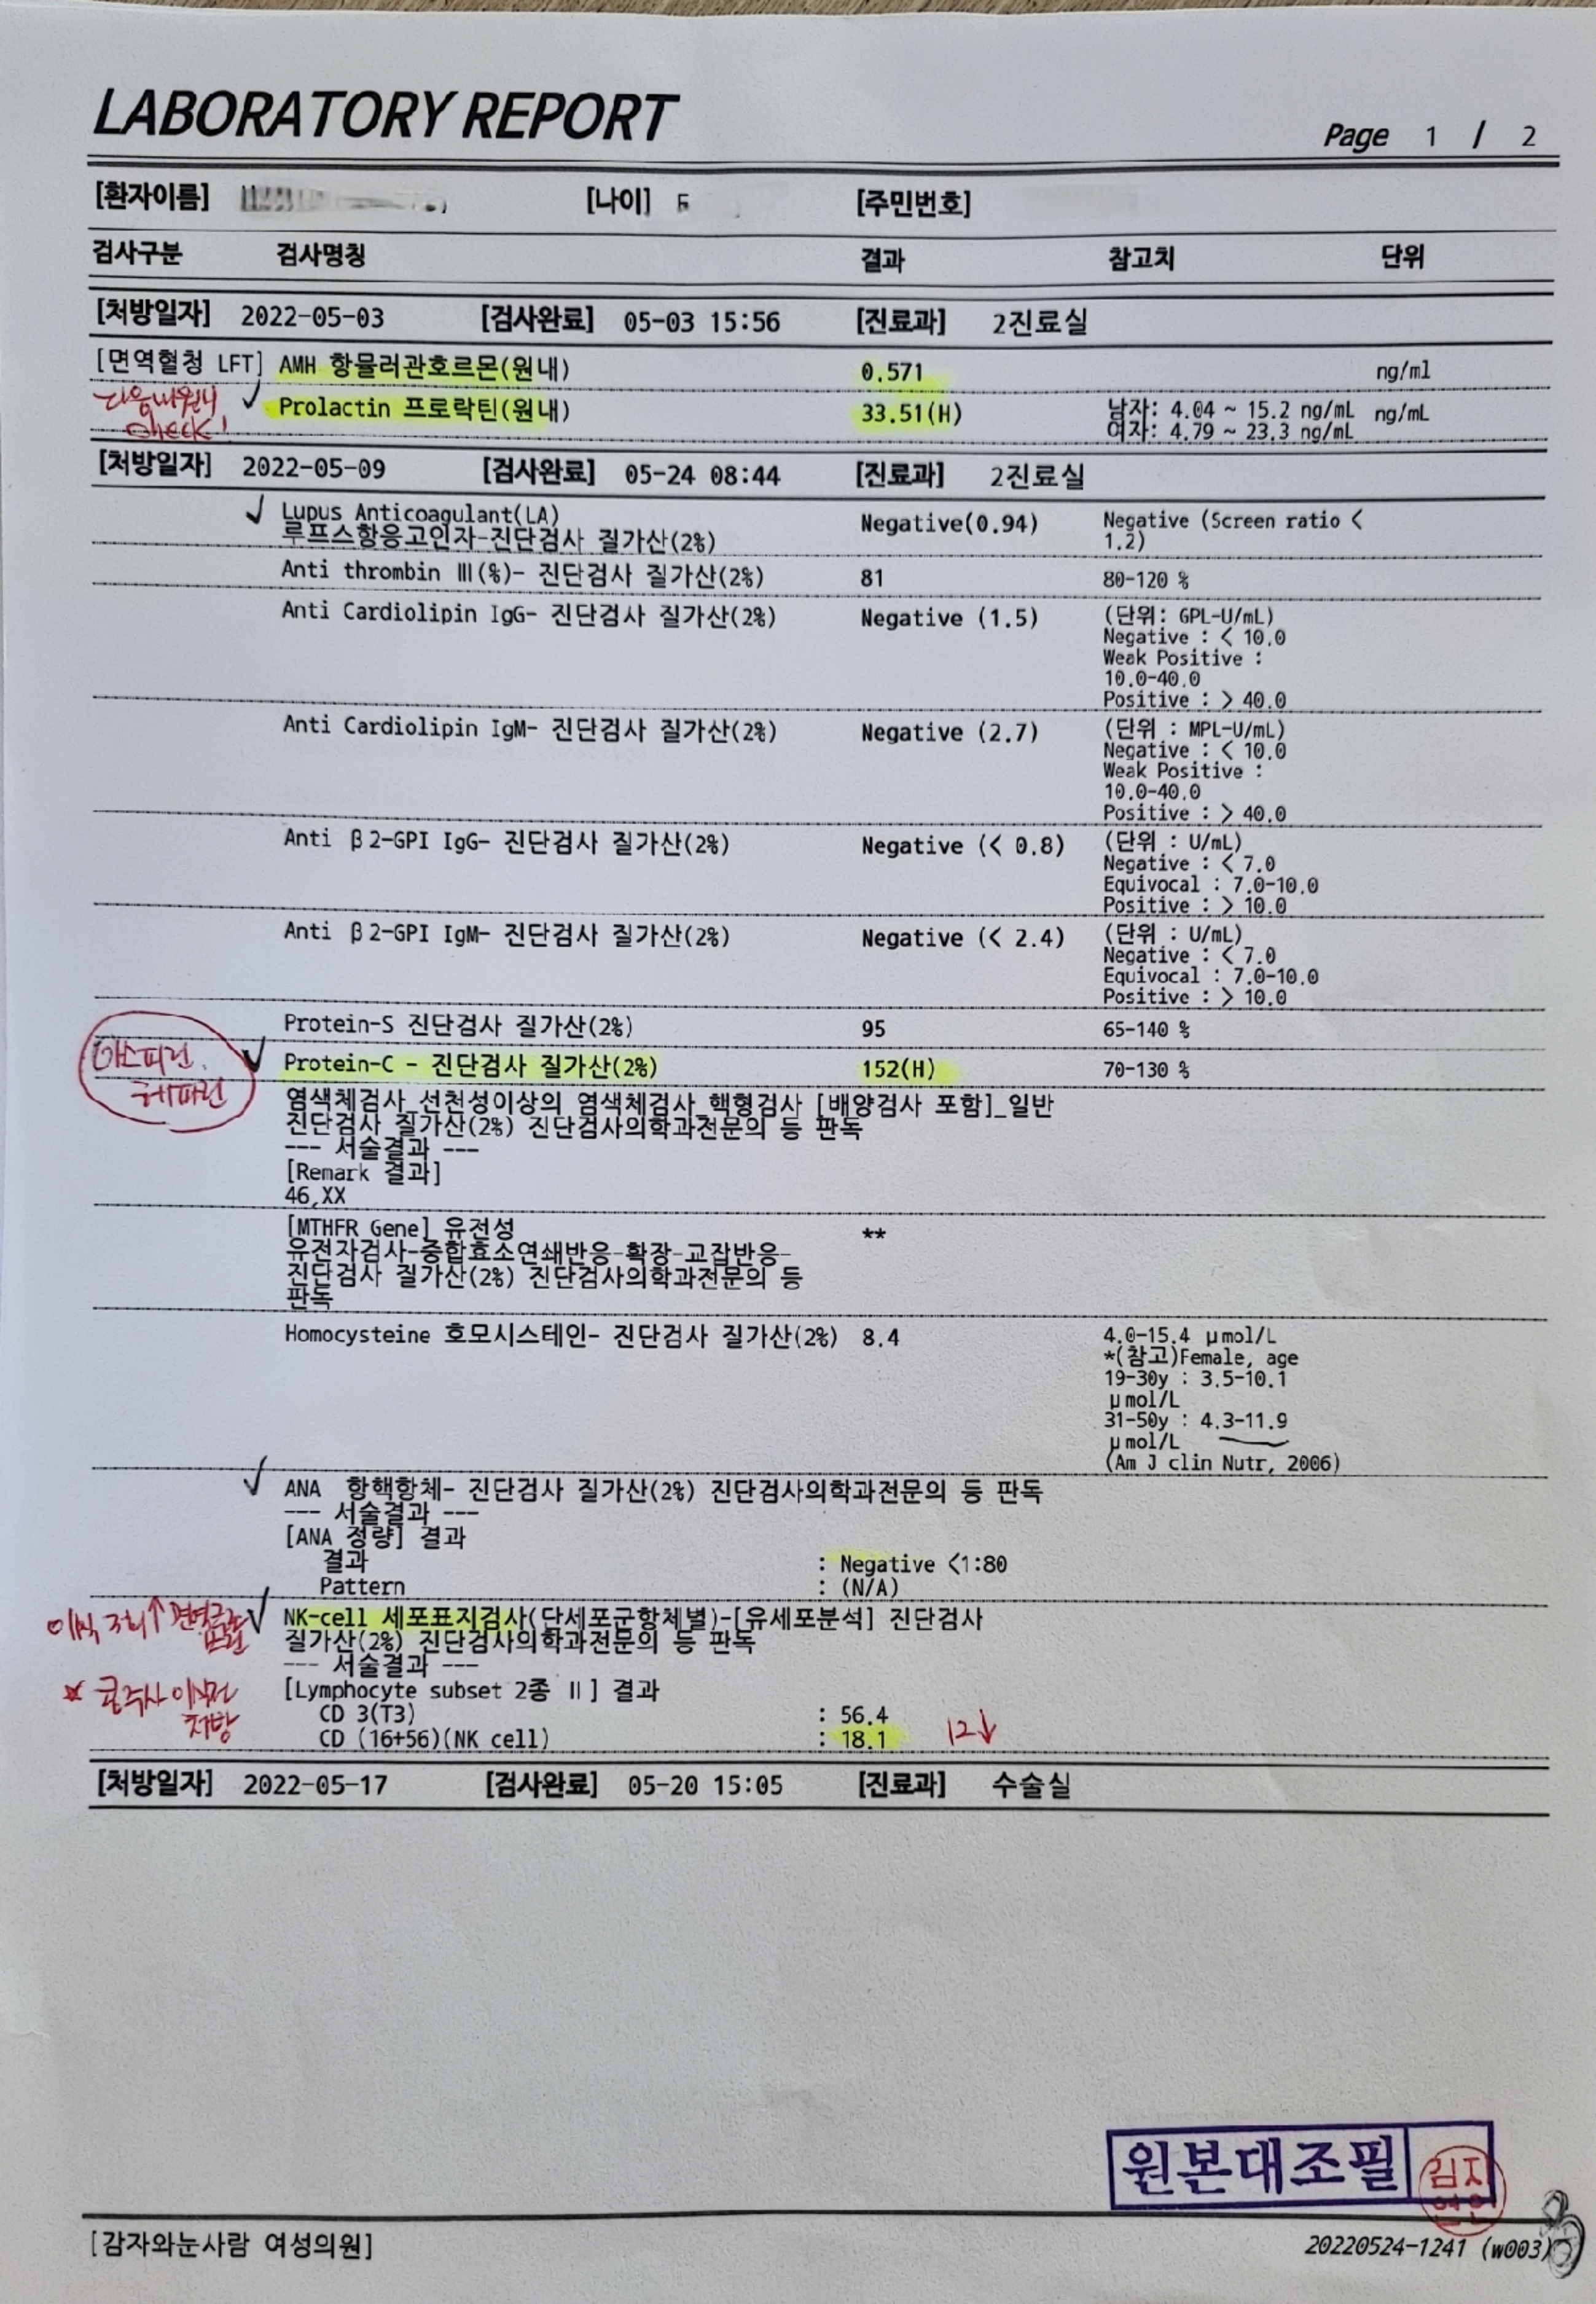 LABORATORY REPORT
Page 1 / 2
[환자이름] [나이] [주민번호]
검사구분 검사명칭 결과 참고치 단위
[처방일자] 2022-05-03 [검사완료] 05-03 15:56 [진료과] 2진료실
[면역혈청 LFT] AMH 항뮬러관호르몬(원내) 0.571 ng/ml
Prolactin 프로락틴(원내) 33.51(H) 남자: 4.04 ~ 15.2 ng/mL ng/mL
여자: 4.79 ~ 23.3 ng/mL
check!
[처방일자] 2022-05-09 [검사완료] 05-24 08:44 [진료과] 2진료실
Lupus Anticoagulant(LA) Negative(0.94) Negative (Screen ratio <
루프스항응고인자-진단검사 질가산(2%) 1.2)
Anti thrombin Ⅲ(%)- 진단검사 질가산(2%) 81 80-120 %
Anti Cardiolipin IgG- 진단검사 질가산(2%) Negative (1.5) (단위: GPL-U/mL)
Negative : < 10.0
Weak Positive :
10.0-40.0
Positive : > 40.0
Anti Cardiolipin IgM- 진단검사 질가산(2%) Negative (2.7) (단위 : MPL-U/mL)
Negative : < 10.0
Weak Positive :
10.0-40.0
Positive : > 40.0
Anti β2-GPI IgG- 진단검사 질가산(2%) Negative (< 0.8) (단위 : U/mL)
Negative : < 7.0
Equivocal : 7.0-10.0
Positive : > 10.0
Anti β2-GPI IgM- 진단검사 질가산(2%) Negative (< 2.4) (단위 : U/mL)
Negative : < 7.0
Equivocal : 7.0-10.0
Positive : > 10.0
Protein-S 진단검사 질가산(2%) 95 65-140 %
아스피린.
헤파린
Protein-C - 진단검사 질가산(2%) 152(H) 70-130 %
염색체검사_선천성이상의 염색체검사_핵형검사 [배양검사 포함]_일반
진단검사 질가산(2%) 진단검사의학과전문의 등 판독
--- 서술결과 ---
[Remark 결과]
46,XX
[MTHFR Gene] 유전성 **
유전자검사-중합효소연쇄반응-확장-교잡반응-
진단검사 질가산(2%) 진단검사의학과전문의 등
판독
Homocysteine 호모시스테인- 진단검사 질가산(2%) 8.4 4.0-15.4 μmol/L
*(참고)Female, age
19-30y : 3.5-10.1
μmol/L
31-50y : 4.3-11.9
μmol/L
(Am J clin Nutr, 2006)
ANA 항핵항체- 진단검사 질가산(2%) 진단검사의학과전문의 등 판독
--- 서술결과 ---
[ANA 정량] 결과
결과 : Negative <1:80
Pattern : (N/A)
이식 3회↑
NK-cell 세포표지검사(단세포군항체별)-[유세포분석] 진단검사
질가산(2%) 진단검사의학과전문의 등 판독
--- 서술결과 ---
콩주사 이식전
처방
[Lymphocyte subset 2종 Ⅱ] 결과
CD 3(T3) : 56.4
CD (16+56)(NK cell) : 18.1 12↓
[처방일자] 2022-05-17 [검사완료] 05-20 15:05 [진료과] 수술실
원본대조필
김지
[감자와눈사람 여성의원] 20220524-1241 (w003)